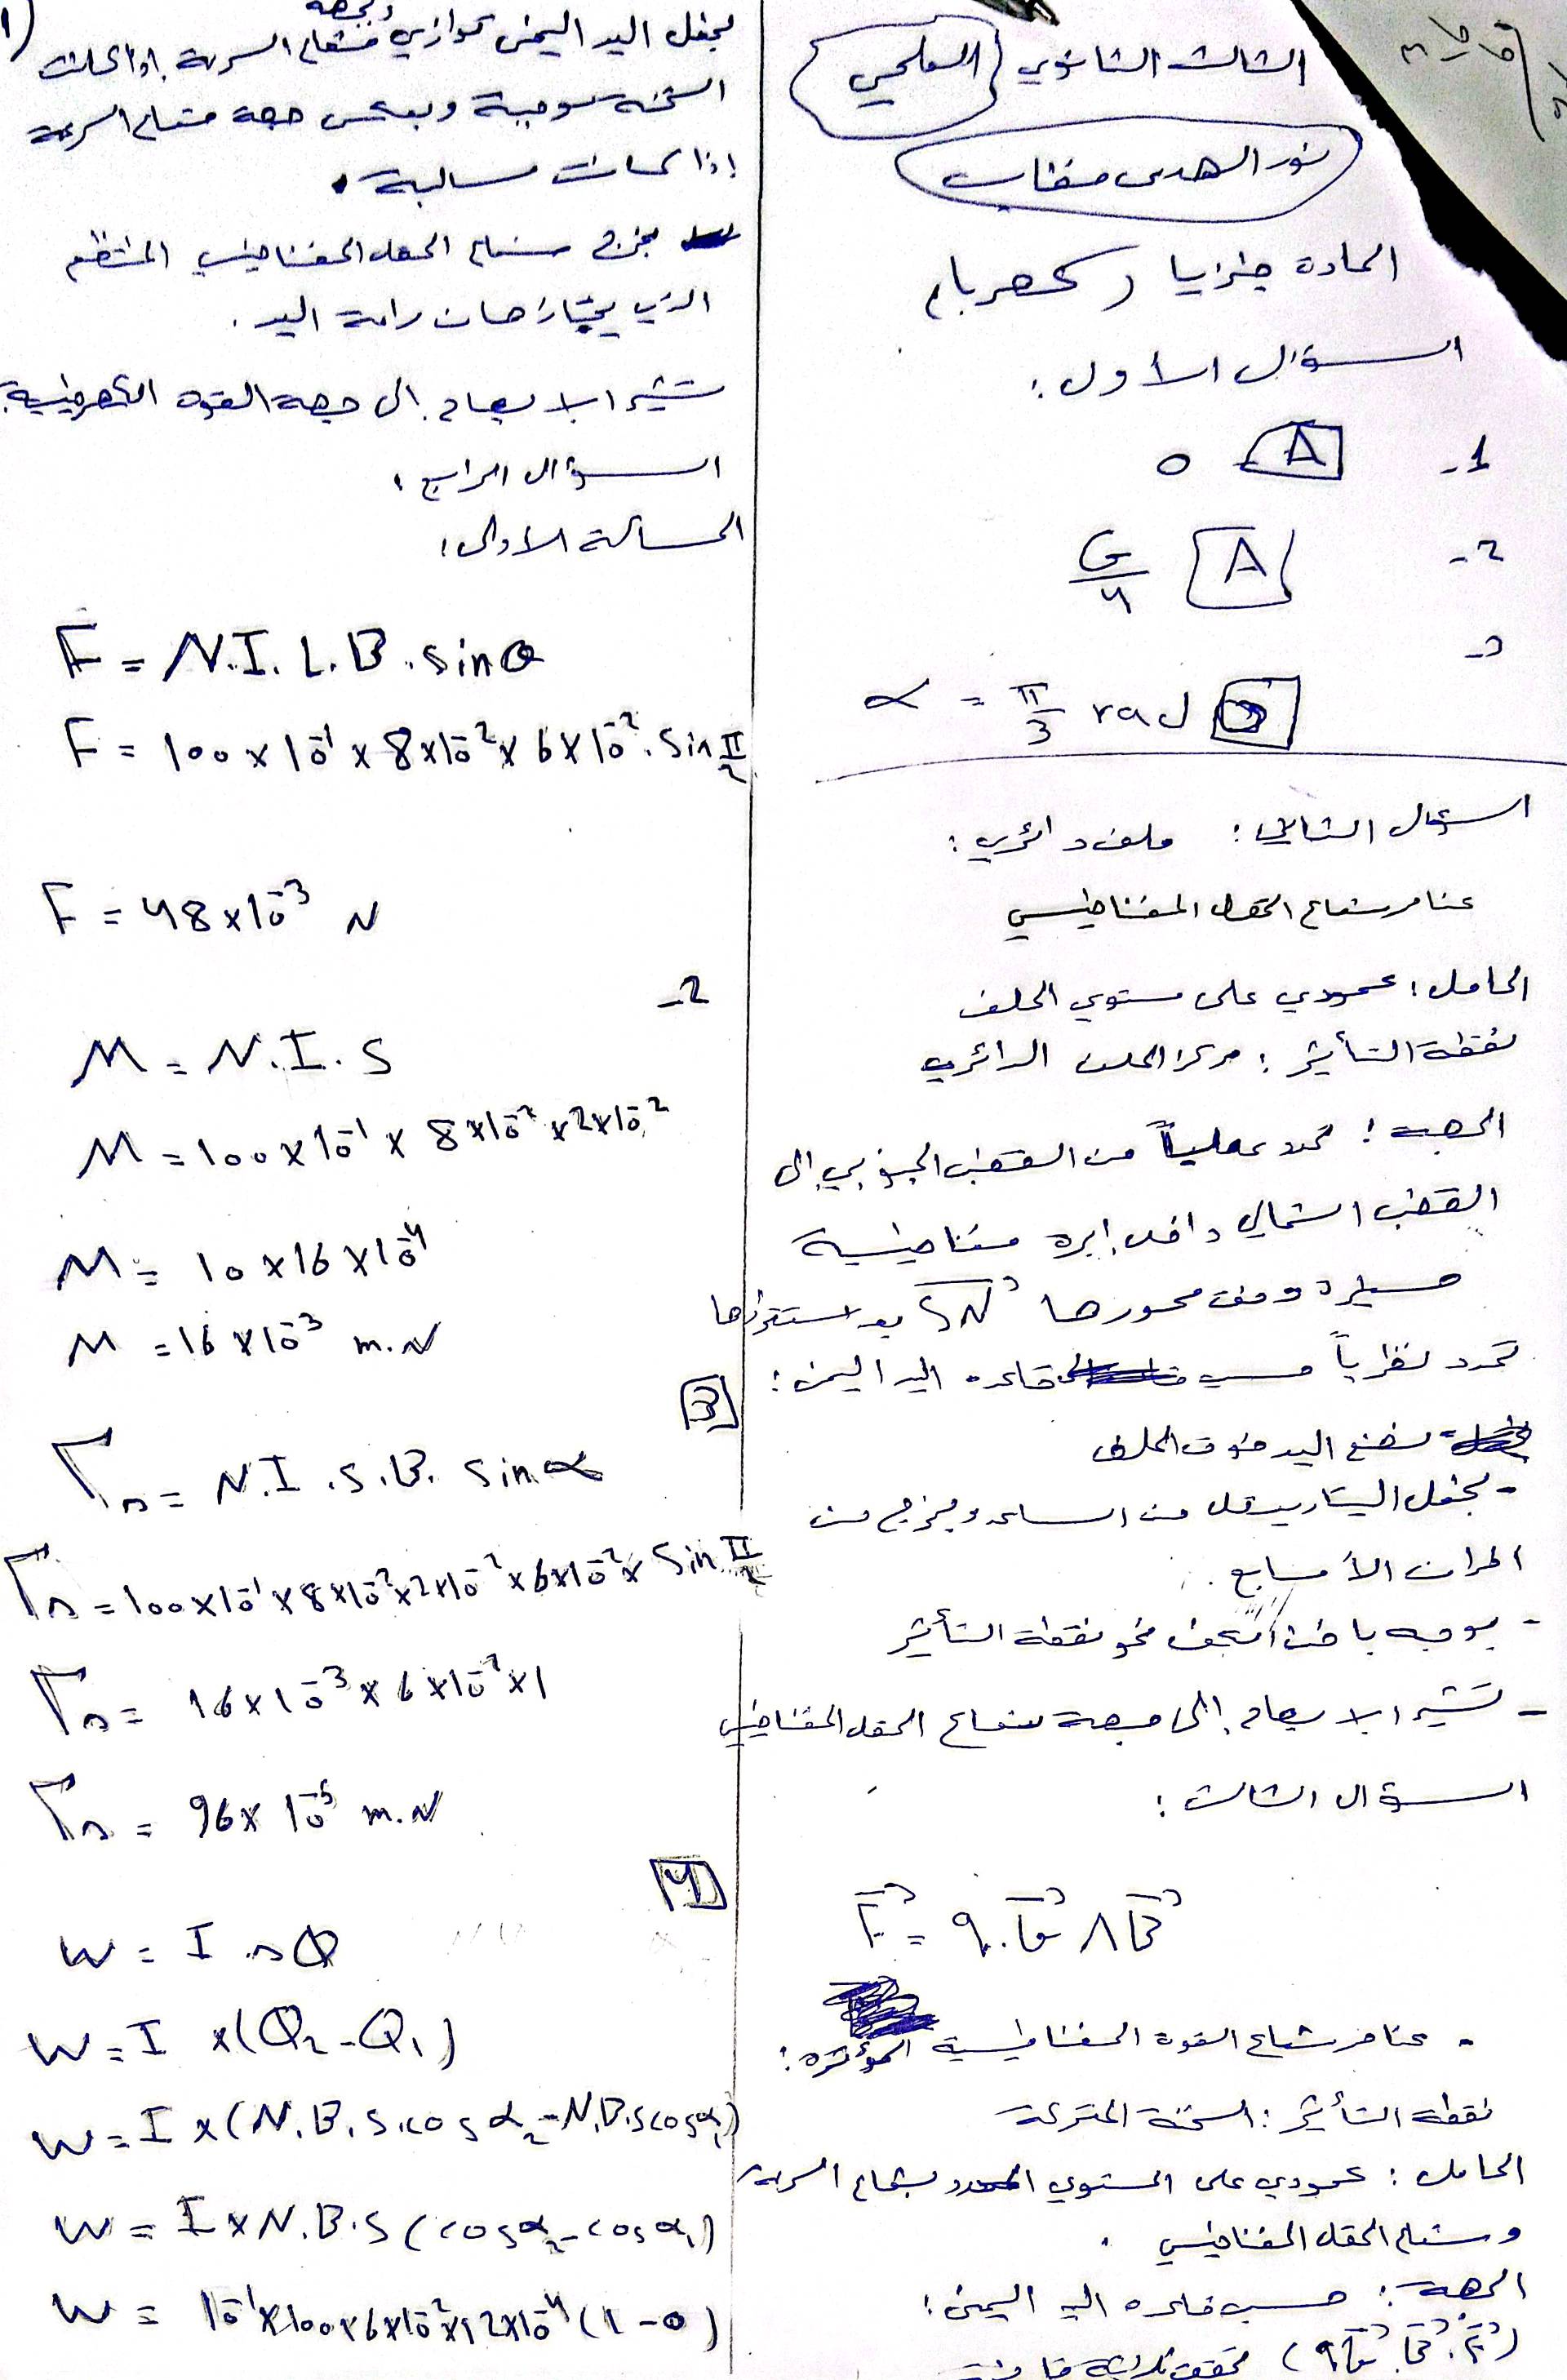 الثالث الثانوي العلمي
نور الهدى
المادة فيزيا ( كهرباء
السؤال الأول :
1- A 0
2- A G/4
3- α = π/3 rad
السؤال الثاني : ملف دائري :
عناصر شعاع الحقل المغناطيسي
الحامل : عمودي على مستوي الملف
نقطة التأثير : مركز الملف الدائري
الجهة : تحدد عملياً من القطب الجنوبي الى
القطب الشمالي داخل إبرة مغناطيسية
محورها SN بعد استقرارها
تحدد نظرياً حسب قاعده اليد اليمنى :
نضع اليد فوق الملف
- نجعل التيار يدخل من الساعد ويخرج من
الأصابع .
- يوجه باطن الكف نحو نقطة التأثير
- تشير الابهام إلى جهة شعاع الحقل المغناطيسي
السؤال الثالث :
F = q.v ∧ B
- عناصر شعاع القوة المغناطيسية المؤثره :
نقطة التأثير : الشحنة المتحركة
الحامل : عمودي على المستوي المحدد بشعاع السرعة
وشعاع الحقل المغناطيسي .
الجهة : حسب قاعده اليد اليمنى :
نجعل اليد اليمنى توازي شعاع السرعة وبجهته إذا كانت
الشحنة موجبة وبعكس جهة شعاع السرعة
إذا كانت سالبة .
يخرج شعاع الحقل المغناطيسي المنتظم
الذي يجتازها من راحة اليد .
تشير الابهام إلى جهة القوة الكهرطيسية .
السؤال الرابع :
المسألة الاولى :
F = N.I.L.B.sinθ
F = 100 × 10⁻¹ × 8×10⁻² × 6×10⁻² . sin π/2
F = 48×10⁻³ N
2-
M = N.I.S
M = 100×10⁻¹ × 8×10⁻² × 2×10⁻²
M = 10×16×10⁻⁴
M = 16×10⁻³ m.N
3
Γ∆ = N.I.S.B. sin α
Γ∆ = 100×10⁻¹×8×10⁻²×2×10⁻²×6×10⁻²× Sin π/2
Γ∆ = 16×10⁻³×6×10⁻²×1
Γ∆ = 96×10⁻⁵ m.N
4
W = I ∆Φ
W = I ×(Φ₂-Φ₁)
W = I ×(N.B.S.cos α₂ - N.B.S cosα₁)
W = I×N.B.S (cosα₂ - cosα₁)
W = 10⁻¹×100×6×10⁻²×12×10⁻⁴ (1-0)